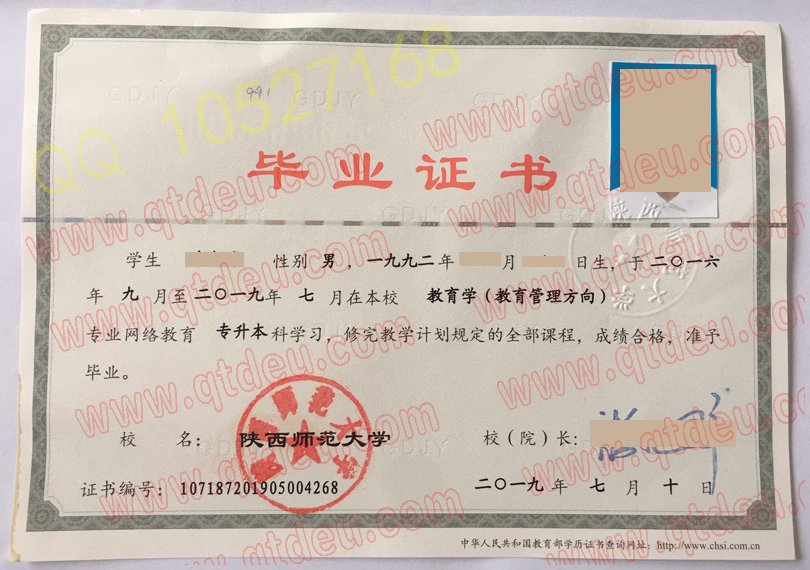 QQ 10527168
GDJY
991
GDJY
GDJY
www.qtdeu.com
毕业证书
GDJY
GDJY
学生 性别 男，一九九二年 月 日生，于二〇一六
年 九 月至二〇一九年 七 月在本校 教育学（教育管理方向）
专业网络教育 专升本科学习，修完教学计划规定的全部课程，成绩合格，准予
毕业。
校 名： 陕西师范大学 校（院）长：
证书编号： 107187201905004268 二〇一九 年 七 月 十 日
中华人民共和国教育部学历证书查询网址：http://www.chsi.com.cn
www.qtdeu.com
www.qtdeu.com
www.qtdeu.com
www.qtdeu.com
www.qtdeu.com
www.qtdeu.com